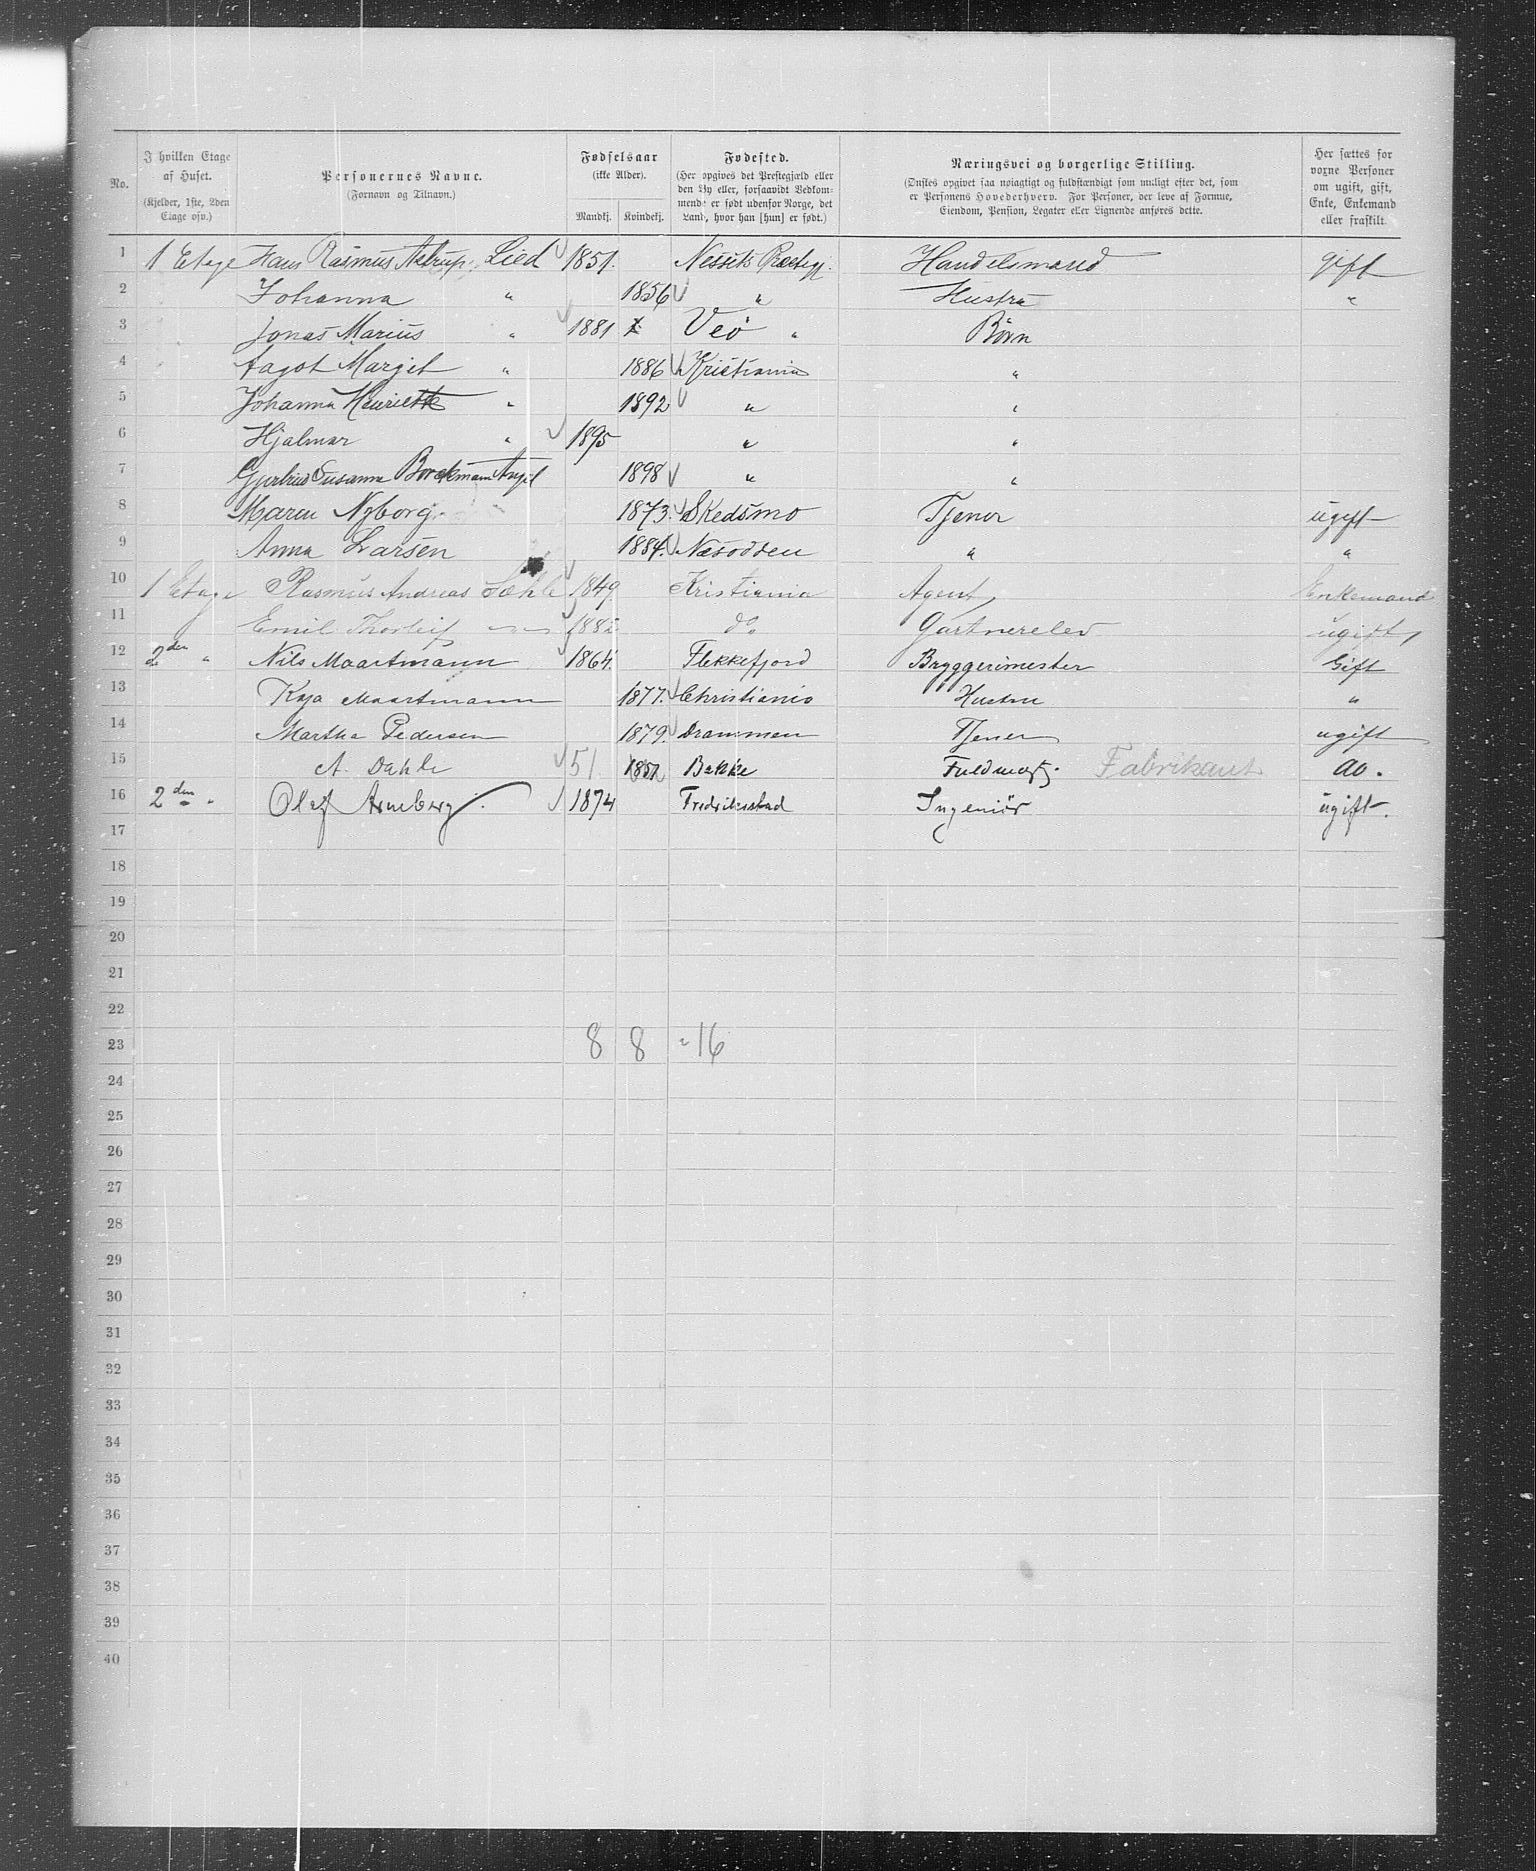 No. I hvilken Etage af Huset. (Kjelder, 1ste, 2den Etage osv.) Personernes Navne. (Fornavn og Tilnavn.) Fødselsaar (ikke Alder). Mandkj. Kvindekj. Fødested. (Her opgives det Prestegjæld eller den By eller, forsaavidt Vedkommende er født udenfor Norge, det Land, hvor han [hun] er født.) Næringsvei og borgerlige Stilling. (Ønskes opgivet saa nøiagtigt og fuldstændigt som muligt efter det, som er Personens Hovederhverv. For Personer, der leve af Formue, Eiendom, Pension, Legater eller Lignende anføres dette. Her sættes for voxne Personer om ugift, gift, Enke, Enkemand eller fraskilt.
1 1 Etage Hans Rasmus Astrup Lied 1851. Nessets Præstegj. Handelsmand gift
2 Johanna " 1856 " Hustru "
3 Jonas Marius " 1881 Veö " Børn
4 Aagot Margit " 1886 Kristiania "
5 Johanna Henriette " 1892 " "
6 Hjalmar " 1895 " "
7 Gjertrud Susanna Borckmann 1898 " "
8 Maren Nyborg. 1873. Skedsmo Tjener ugift
9 Anna Larsen 1884. Næsodden " "
10 1 Etage Rasmus Andreas Sæhle 1849 Kristiania Agent Enkemand
11 Emil Thorleif 1882 do Gartnerelev ugift,
12 2den " Nils Maartmann 1864. Flekkefjord Bryggerimester Gift
13 Kaja Maartmann 1877. Christiania Hustru "
14 Martha Pedersen 1879. Drammen Tjener ugift
15 A. Dahle 51. 1851 Bakke Fuldmægt. Fabrikant do.
16 2den " Olaf Arneberg. 1874 Fredrikstad Ingeniør ugift.
17
18
19
20
21
22
23 8 8 = 16
24
25
26
27
28
29
30
31
32
33
34
35
36
37
38
39
40